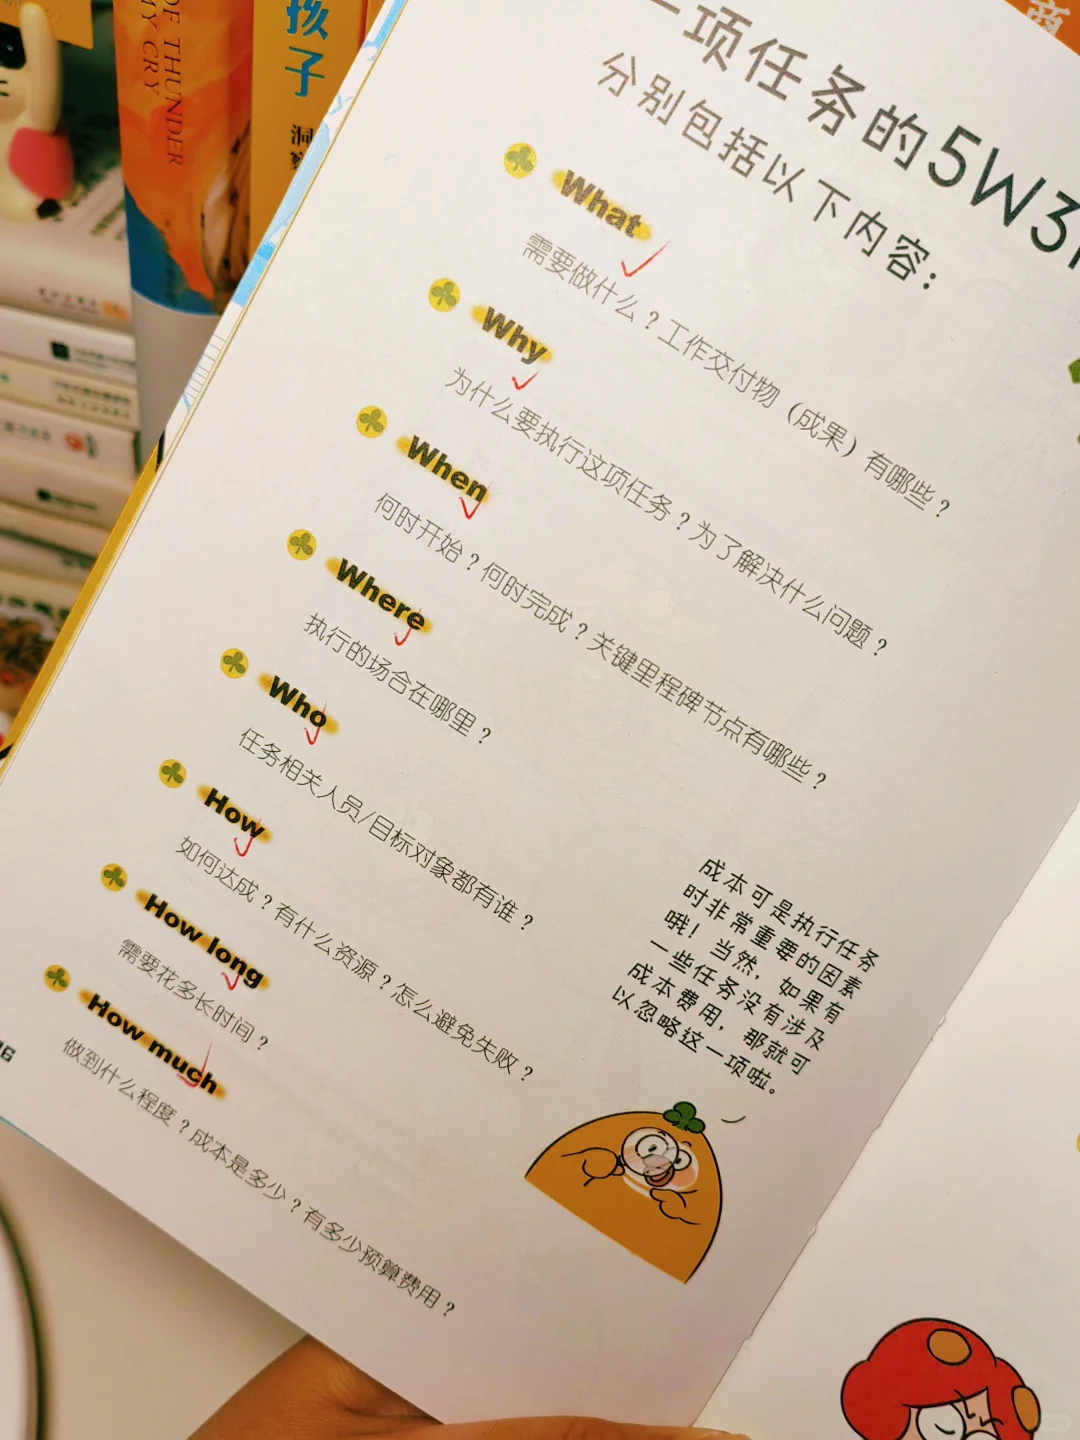 OF THUNDER
MY CRY
孩子
洞
商
一项任务的5W3
分别包括以下内容：
What
需要做什么？工作交付物（成果）有哪些？
Why
为什么要执行这项任务？为了解决什么问题？
When
何时开始？何时完成？关键里程碑节点有哪些？
Where
执行的场合在哪里？
Who
任务相关人员/目标对象都有谁？
How
如何达成？有什么资源？怎么避免失败？
How long
需要花多长时间？
How much
做到什么程度？成本是多少？有多少预算费用？
成本可是执行任务
时非常重要的因素
哦！当然，如果有
一些任务没有涉及
成本费用，那就可
以忽略这一项啦。
16